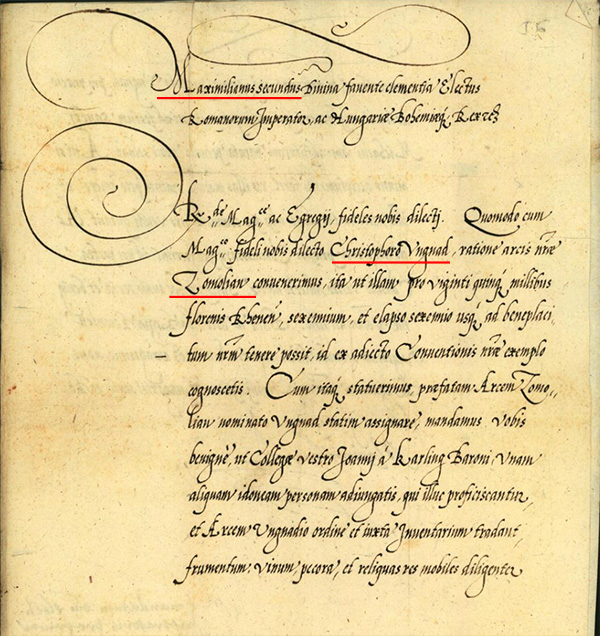 Maximilianus secundus Divina favente clementia Electus
Romanorum Imperator, ac Hungariæ Bohemiæq̃ Rex etc̃
Reᵈᵉ Magᶜᵉ ac Egregij, fideles nobis dilecti. Quomodo cum
Magᶜᵒ fideli nobis dilecto Christophoro Ungnad, ratione arcis nr̃æ
Zomolian convenerimus, ita ut illam pro viginti quinq̃ millibus
florenis Rhenen̄, sexennium, et elapso sexennio usq̃ ad beneplaci-
tum nr̃m tenere possit, id ex adiecto Conventionis nr̃æ exemplo
cognoscetis. Cum itaq̃ statuerimus, præfatam Arcem Zomo-
lian nominato Ungnad statim assignare, mandamus vobis
benignè, ut Collegæ vestro Joannj à Karling Baroni, unam
aliquam idoneam personam adiungatis, qui illuc proficiscantur,
et Arcem Ungnadio ordine et iuxta Inventarium tradant,
frumentum, vinum, pecora, et reliquas res mobiles diligenter